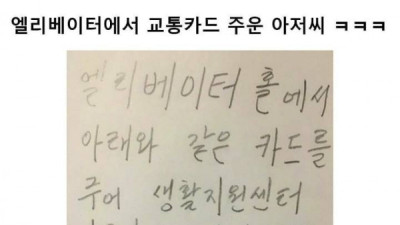 엘리베이터에서 교통카드 주운 아저씨 ㅋㅋㅋ
엘리베이터 홀에서
아래와 같은 카드를
주어 생활지원센터